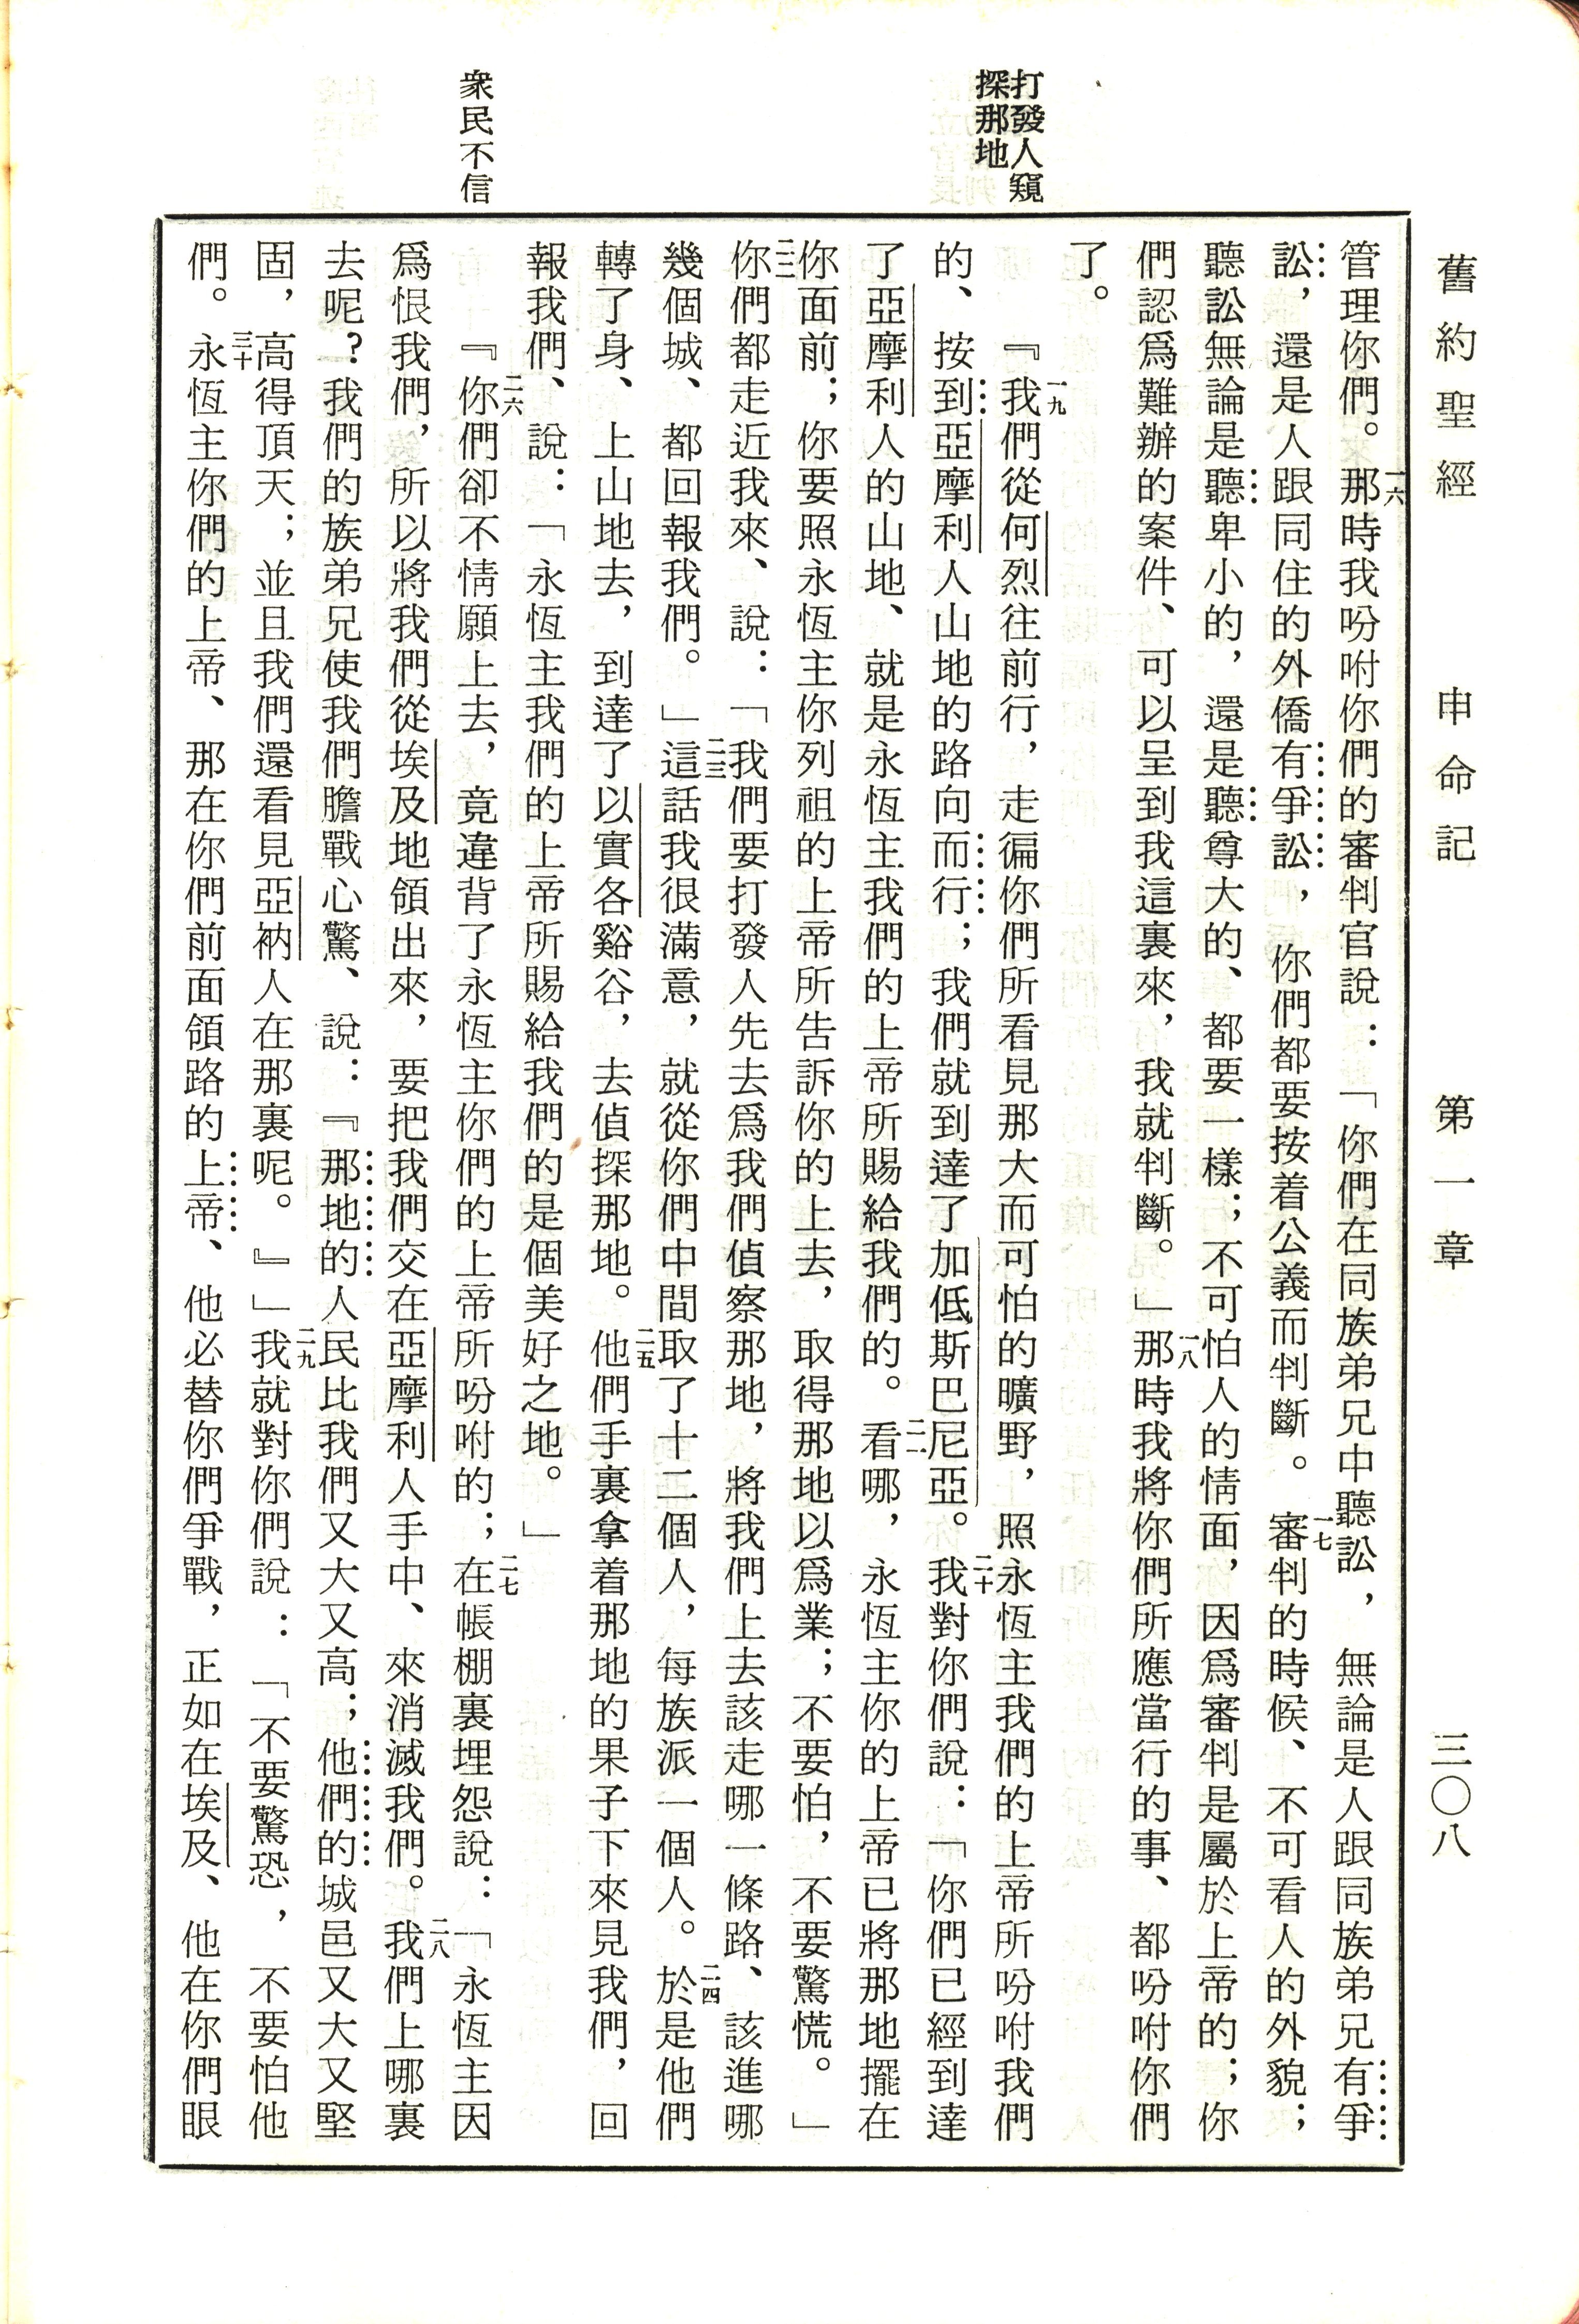 舊約聖經 申命記 第一章 三〇八
打發人窺
探那地
衆民不信
管理你們。一六那時我吩咐你們的審判官說：「你們在同族弟兄中聽訟，無論是人跟同族弟兄有爭
訟，還是人跟同住的外僑有爭訟，你們都要按着公義而判斷。一七審判的時候、不可看人的外貌；
聽訟無論是聽卑小的，還是聽尊大的、都要一樣；不可怕人的情面，因爲審判是屬於上帝的；你
們認爲難辦的案件、可以呈到我這裏來，我就判斷。」一八那時我將你們所應當行的事、都吩咐你們
了。
『一九我們從何烈往前行，走徧你們所看見那大而可怕的曠野，照永恆主我們的上帝所吩咐我們
的、按到亞摩利人山地的路向而行；我們就到達了加低斯巴尼亞。二十我對你們說：「你們已經到達
了亞摩利人的山地、就是永恆主我們的上帝所賜給我們的。二一看哪，永恆主你的上帝已將那地擺在
你面前；你要照永恆主你列祖的上帝所告訴你的上去，取得那地以爲業；不要怕，不要驚慌。」
二二你們都走近我來、說：「我們要打發人先去爲我們偵察那地，將我們上去該走哪一條路、該進哪
幾個城、都回報我們。」二三這話我很滿意，就從你們中間取了十二個人，每族派一個人。二四於是他們
轉了身、上山地去，到達了以實各谿谷，去偵探那地。二五他們手裏拿着那地的果子下來見我們，回
報我們、說：「永恆主我們的上帝所賜給我們的是個美好之地。」
『二六你們卻不情願上去，竟違背了永恆主你們的上帝所吩咐的；二七在帳棚裏埋怨說：「永恆主因
爲恨我們，所以將我們從埃及地領出來，要把我們交在亞摩利人手中、來消滅我們。二八我們上哪裏
去呢？我們的族弟兄使我們膽戰心驚、說：『那地的人民比我們又大又高；他們的城邑又大又堅
固，高得頂天；並且我們還看見亞衲人在那裏呢。』」二九我就對你們說：「不要驚恐，不要怕他
們。三十永恆主你們的上帝、那在你們前面領路的上帝、他必替你們爭戰，正如在埃及、他在你們眼